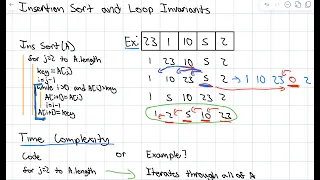 Insertion Sort and Loop Invariants
Ins Sort(A)
for j=2 to A.length
key=A[j]
i=j-1
while i>0 and A[i]>key
A[i+1]=A[i]
i=i-1
A[i+1]=key
Ex: 23 1 10 5 2
1 23 10 5 2
1 10 23 5 2 → 1 10 23 0 2
1 5 10 23 2
1 2 5 10 23
Time Complexity
Code or Example?
for j=2 to A.length → Iterates through all of A